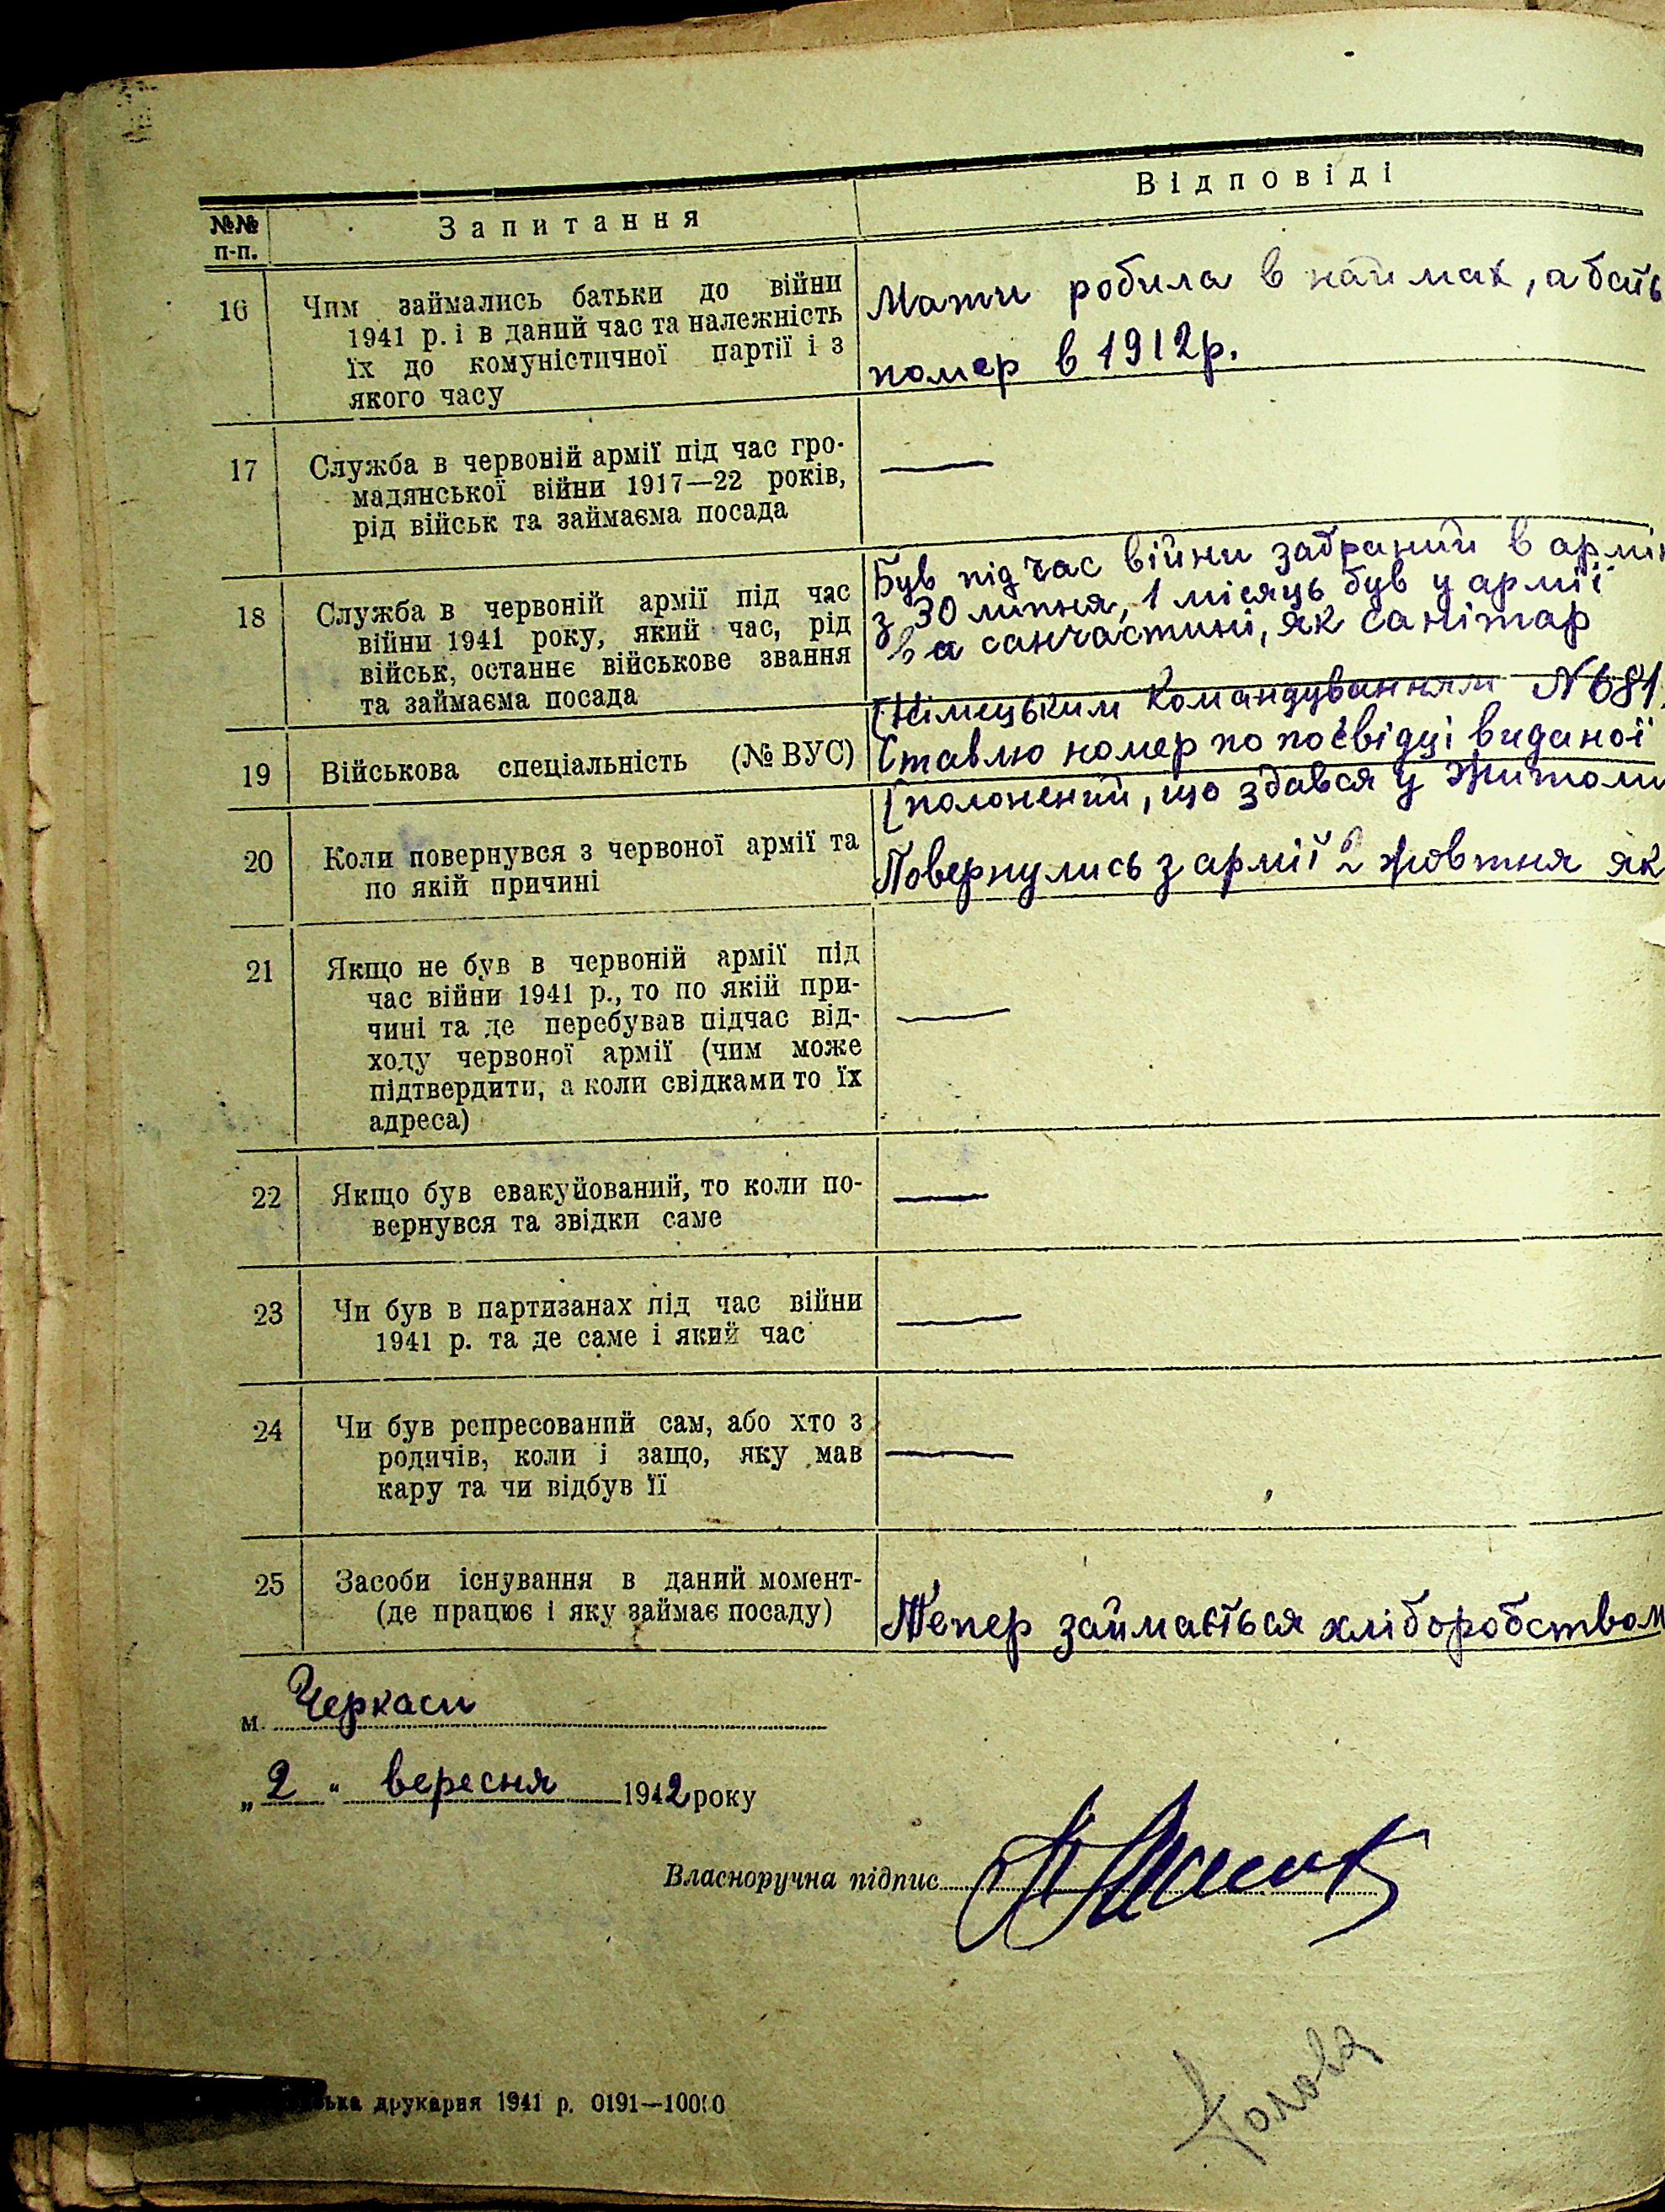 №№ п-п.
Запитання
Відповіді
16
Чим займались батьки до війни
1941 р. і в даний час та належність
їх до комуністичної партії і з
якого часу
Мати робила в наймах, а бать
помер в 1912р.
17
Служба в червоній армії під час гро-
мадянської війни 1917—22 років,
рід військ та займаєма посада
—
18
Служба в червоній армії під час
війни 1941 року, який час, рід
військ, останнє військове звання
та займаєма посада
Був під час війни забраний в армі
з 30 липня, 1 місяць був у армії
санчастині, як санітар
19
Військова спеціальність (№ ВУС)
(Німецьким Командуванням N 681
Ставлю номер по посвідці виданої
20
Коли повернувся з червоної армії та
по якій причині
(полонений, що здався у Житоми
Повернулись з армії 2 жовтня як
21
Якщо не був в червоній армії під
час війни 1941 р., то по якій при-
чині та де перебував підчас від-
ходу червоної армії (чим може
підтвердити, а коли свідками то їх
адреса)
—
22
Якщо був евакуйований, то коли по-
вернувся та звідки саме
—
23
Чи був в партизанах під час війни
1941 р. та де саме і який час
—
24
Чи був репресований сам, або хто з
родичів, коли і защо, яку мав
кару та чи відбув її
—
25
Засоби існування в даний момент-
(де працює і яку займає посаду)
Тепер займається хліборобством
м. Черкаси
„2“ вересня 1942 року
Власноручна підпис
Голова
ька друкарня 1941 р. 0191—10000